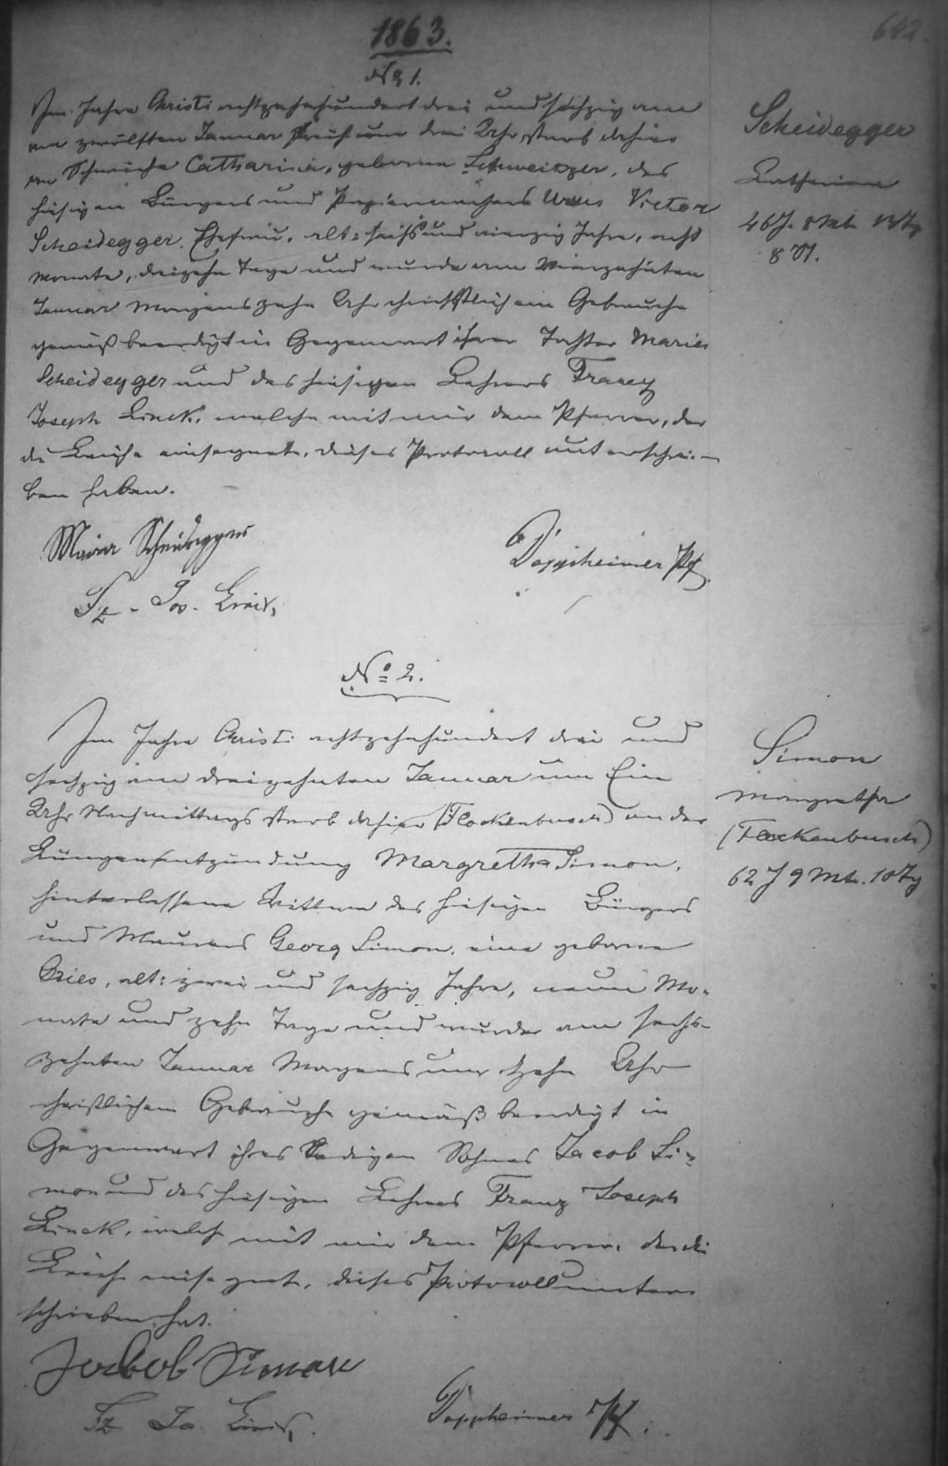 1863.
642.
No 1.
Im Jahre Christi achtzehnhundert drei und sechzig am
am zwölften Januar früh um drei Uhr starb dahier
an Catharina, geborene Schweitzer, des
hiesigen Bürgers und Papiermachers Victor
Scheidegger Ehefrau, alt: sechs und vierzig Jahre, acht
Monate, dreizehn Tage und wurde am vierzehnten
Januar Morgens zehn Uhr christlichem Gebrauche
gemäß beerdigt in Gegenwart ihrer Tochter Maria
Scheidegger und des hiesigen Lehrers Franz
Joseph Linck, welche mit mir dem Pfarrer, der
die Leiche einsegnete, dieses Protocoll unterschrie-
ben haben.
Scheidegger
Catharina
46 J. 8 Mt. 13 Tg
Maria Scheidegger
Doppheimer Pf.
Fz. Jos. Linck,
No 2.
Im Jahre Christi achtzehnhundert drei und
sechzig am dreizehnten Januar um Ein
Uhr Nachmittags starb dahier (Flockenbusch) an der
Lungenentzündung Margretha Simon,
hinterlassene Wittwe des hiesigen Bürgers
und Maurers Georg Simon, eine geborene
Gries, alt: zwei und sechzig Jahre, neun Mo-
nate und zehn Tage und wurde am sechs-
zehnten Januar Morgens um zehn Uhr
christlichem Gebrauche gemäß beerdigt in
Gegenwart ihres ledigen Sohnes Jacob Si-
mon und des hiesigen Lehrers Franz Joseph
Linck, welche mit mir dem Pfarrer, der die
Leiche einsegnete, dieses Protocoll unter-
schrieben hat.
Simon
Margretha
(Flockenbusch)
62 J 9 Mt. 10 Tg
Jackob Simon
Fz Jo. Linck,
Doppheimer Pf.